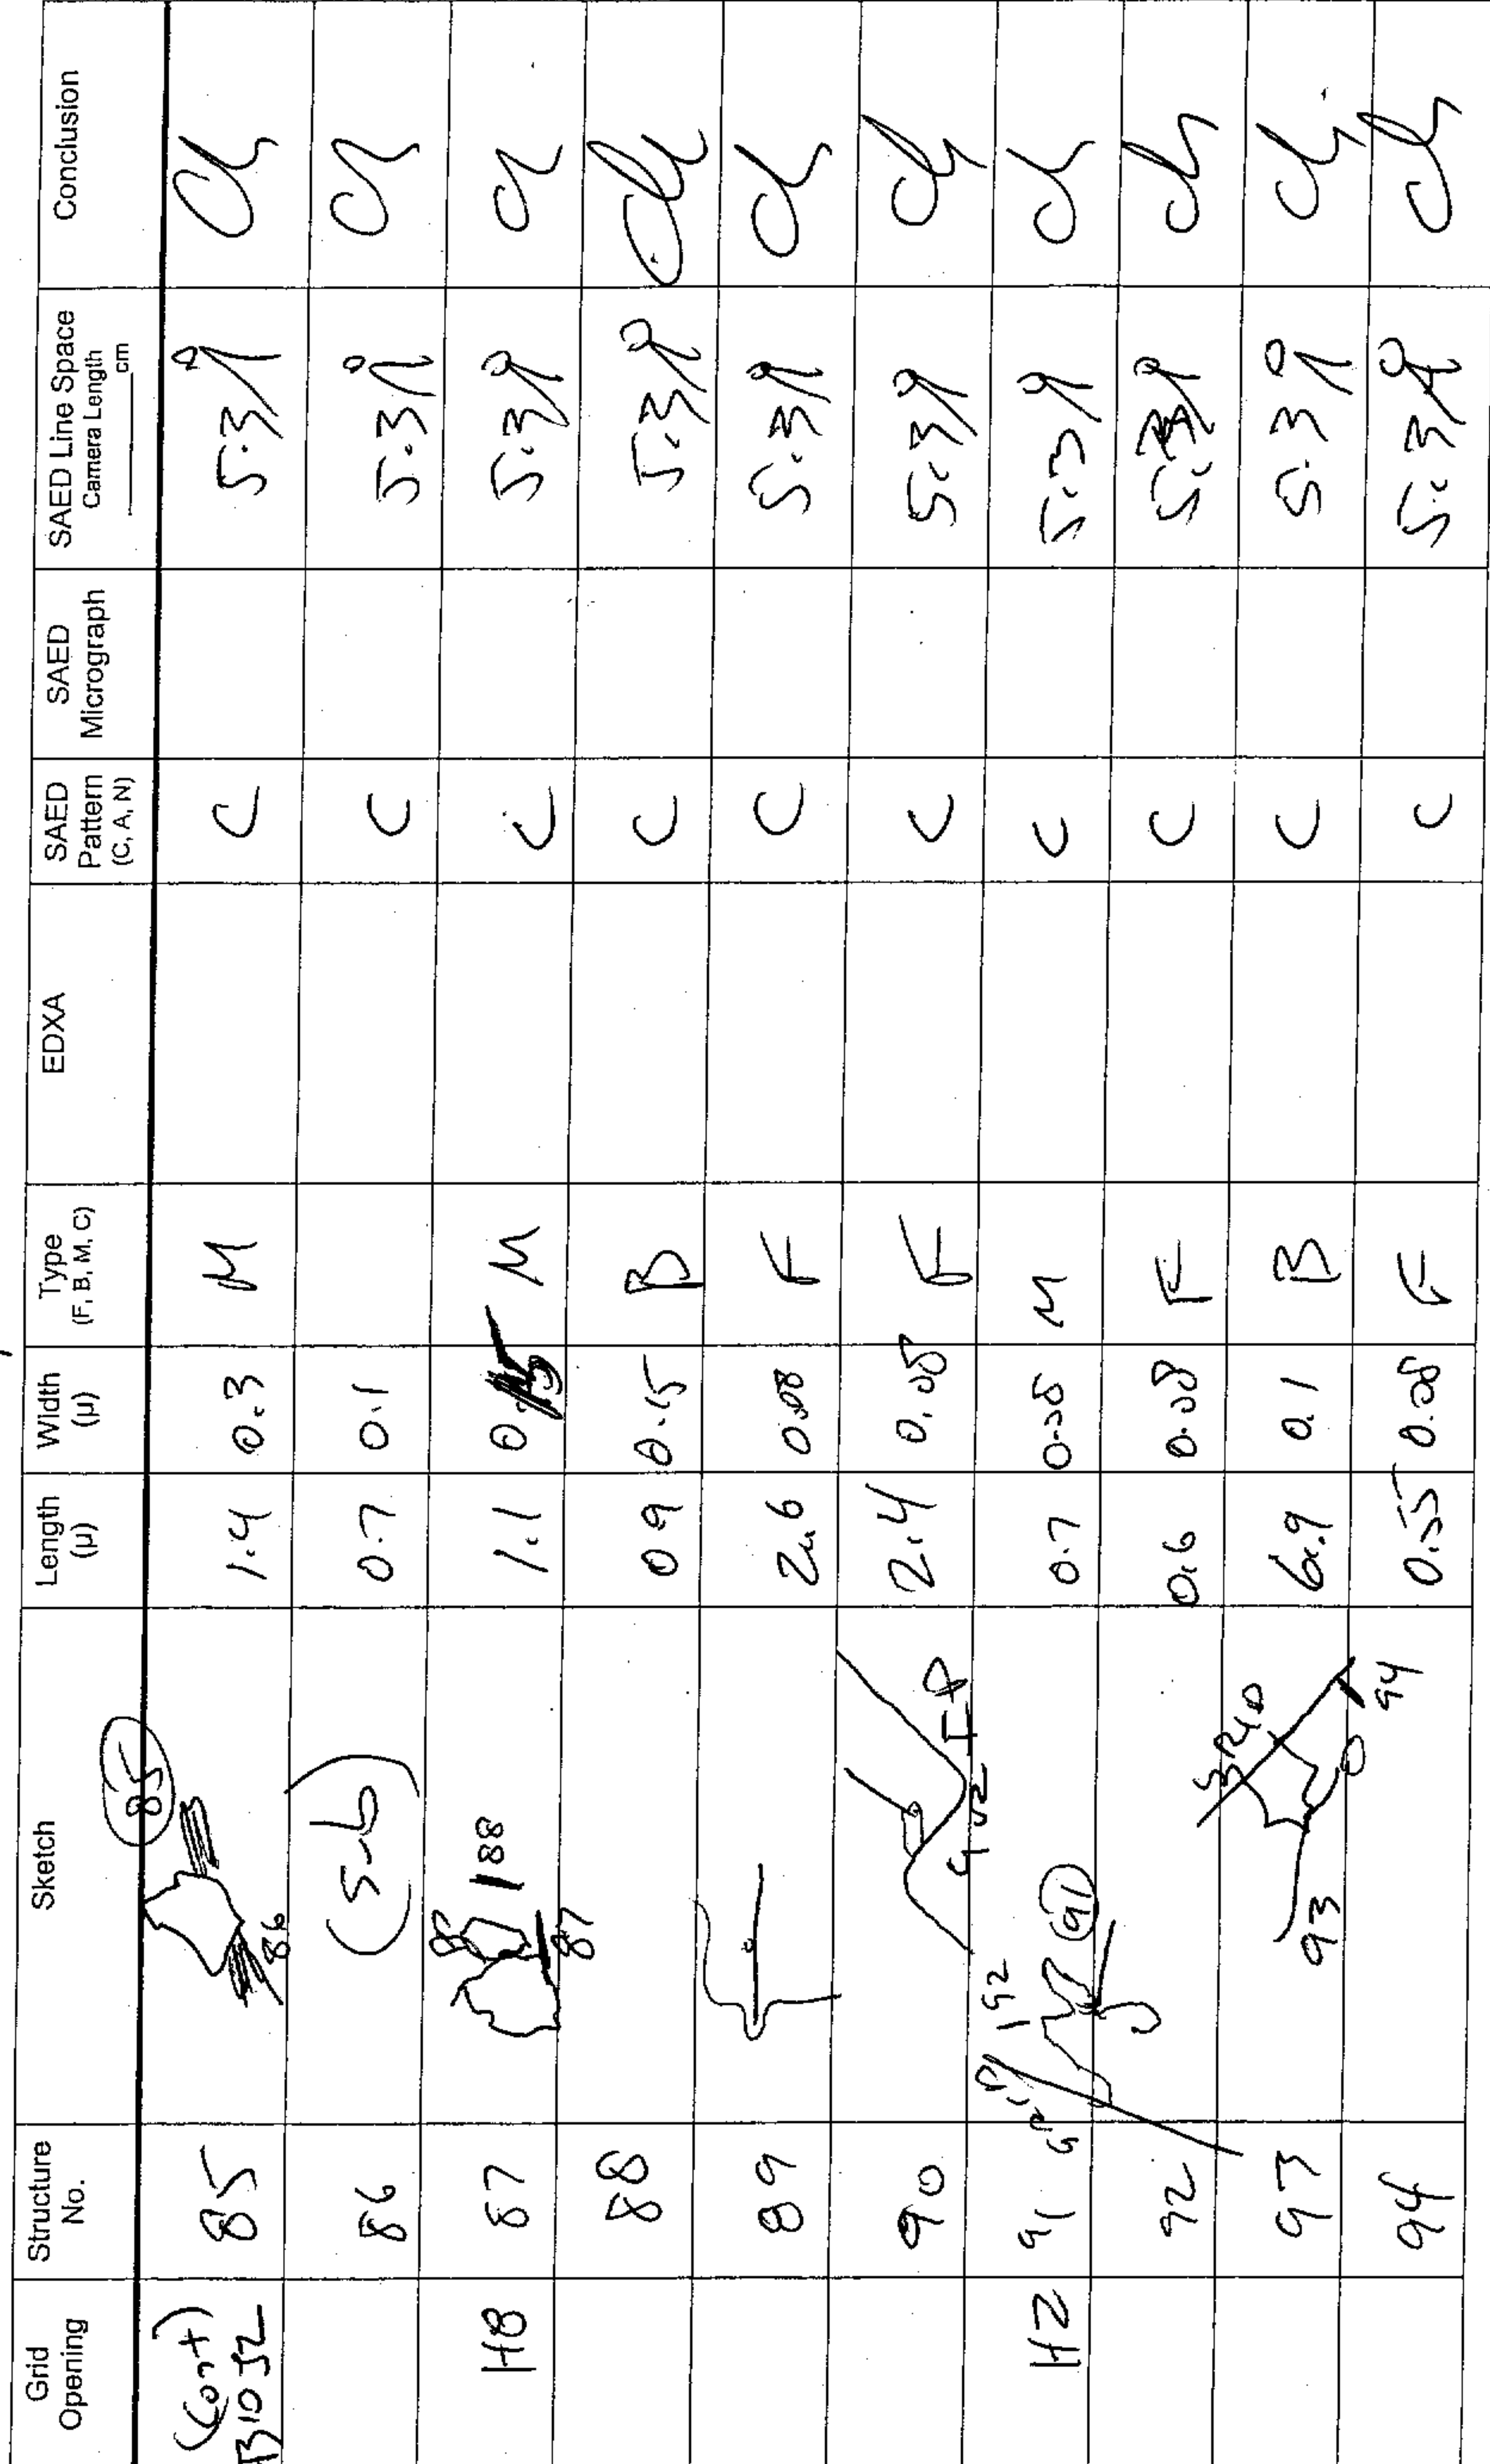 Grid Opening | Structure No. | Sketch | Length (µ) | Width (µ) | Type (F, B, M, C) | EDXA | SAED Pattern (C, A, N) | SAED Micrograph | SAED Line Space Camera Length ____ cm | Conclusion
(Cont) | 85 | 85 86 | 1.4 | 0.3 | M | | C | | 5.3Å | Ch
86 | (5-6) | 0.7 | 0.1 | | | C | | 5.3Å | Ch
H8 | 87 | 88 87 | 1.1 | | M | | C | | 5.3Å | Ch
88 | | 0.9 | 0.15 | B | | C | | 5.3Å | Ch
89 | | 2.6 | 0.08 | F | | C | | 5.3Å | Ch
90 | | 2.4 | 0.08 | F | | C | | 5.3Å | Ch
H2 | 91 | 92 91 | 0.7 | 0.08 | M | | C | | 5.3Å | Ch
92 | | 0.6 | 0.08 | F | | C | | 5.3Å | Ch
93 | 93 94 | 6.9 | 0.1 | B | | C | | 5.3Å | Ch
94 | | 0.55 | 0.08 | F | | C | | 5.3Å | Ch